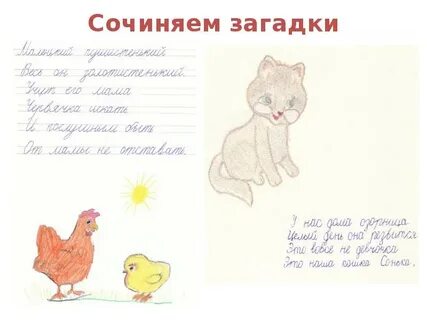 Сочиняем загадки
Маленький пушистенький
Весь он золотистенький.
Учит его мама
Червячка искать
И послушным быть
От мамы не отставать.
У нас дома озорница
Целый день она резвится
Это вовсе не девчонка
Это наша кошка Сонька.